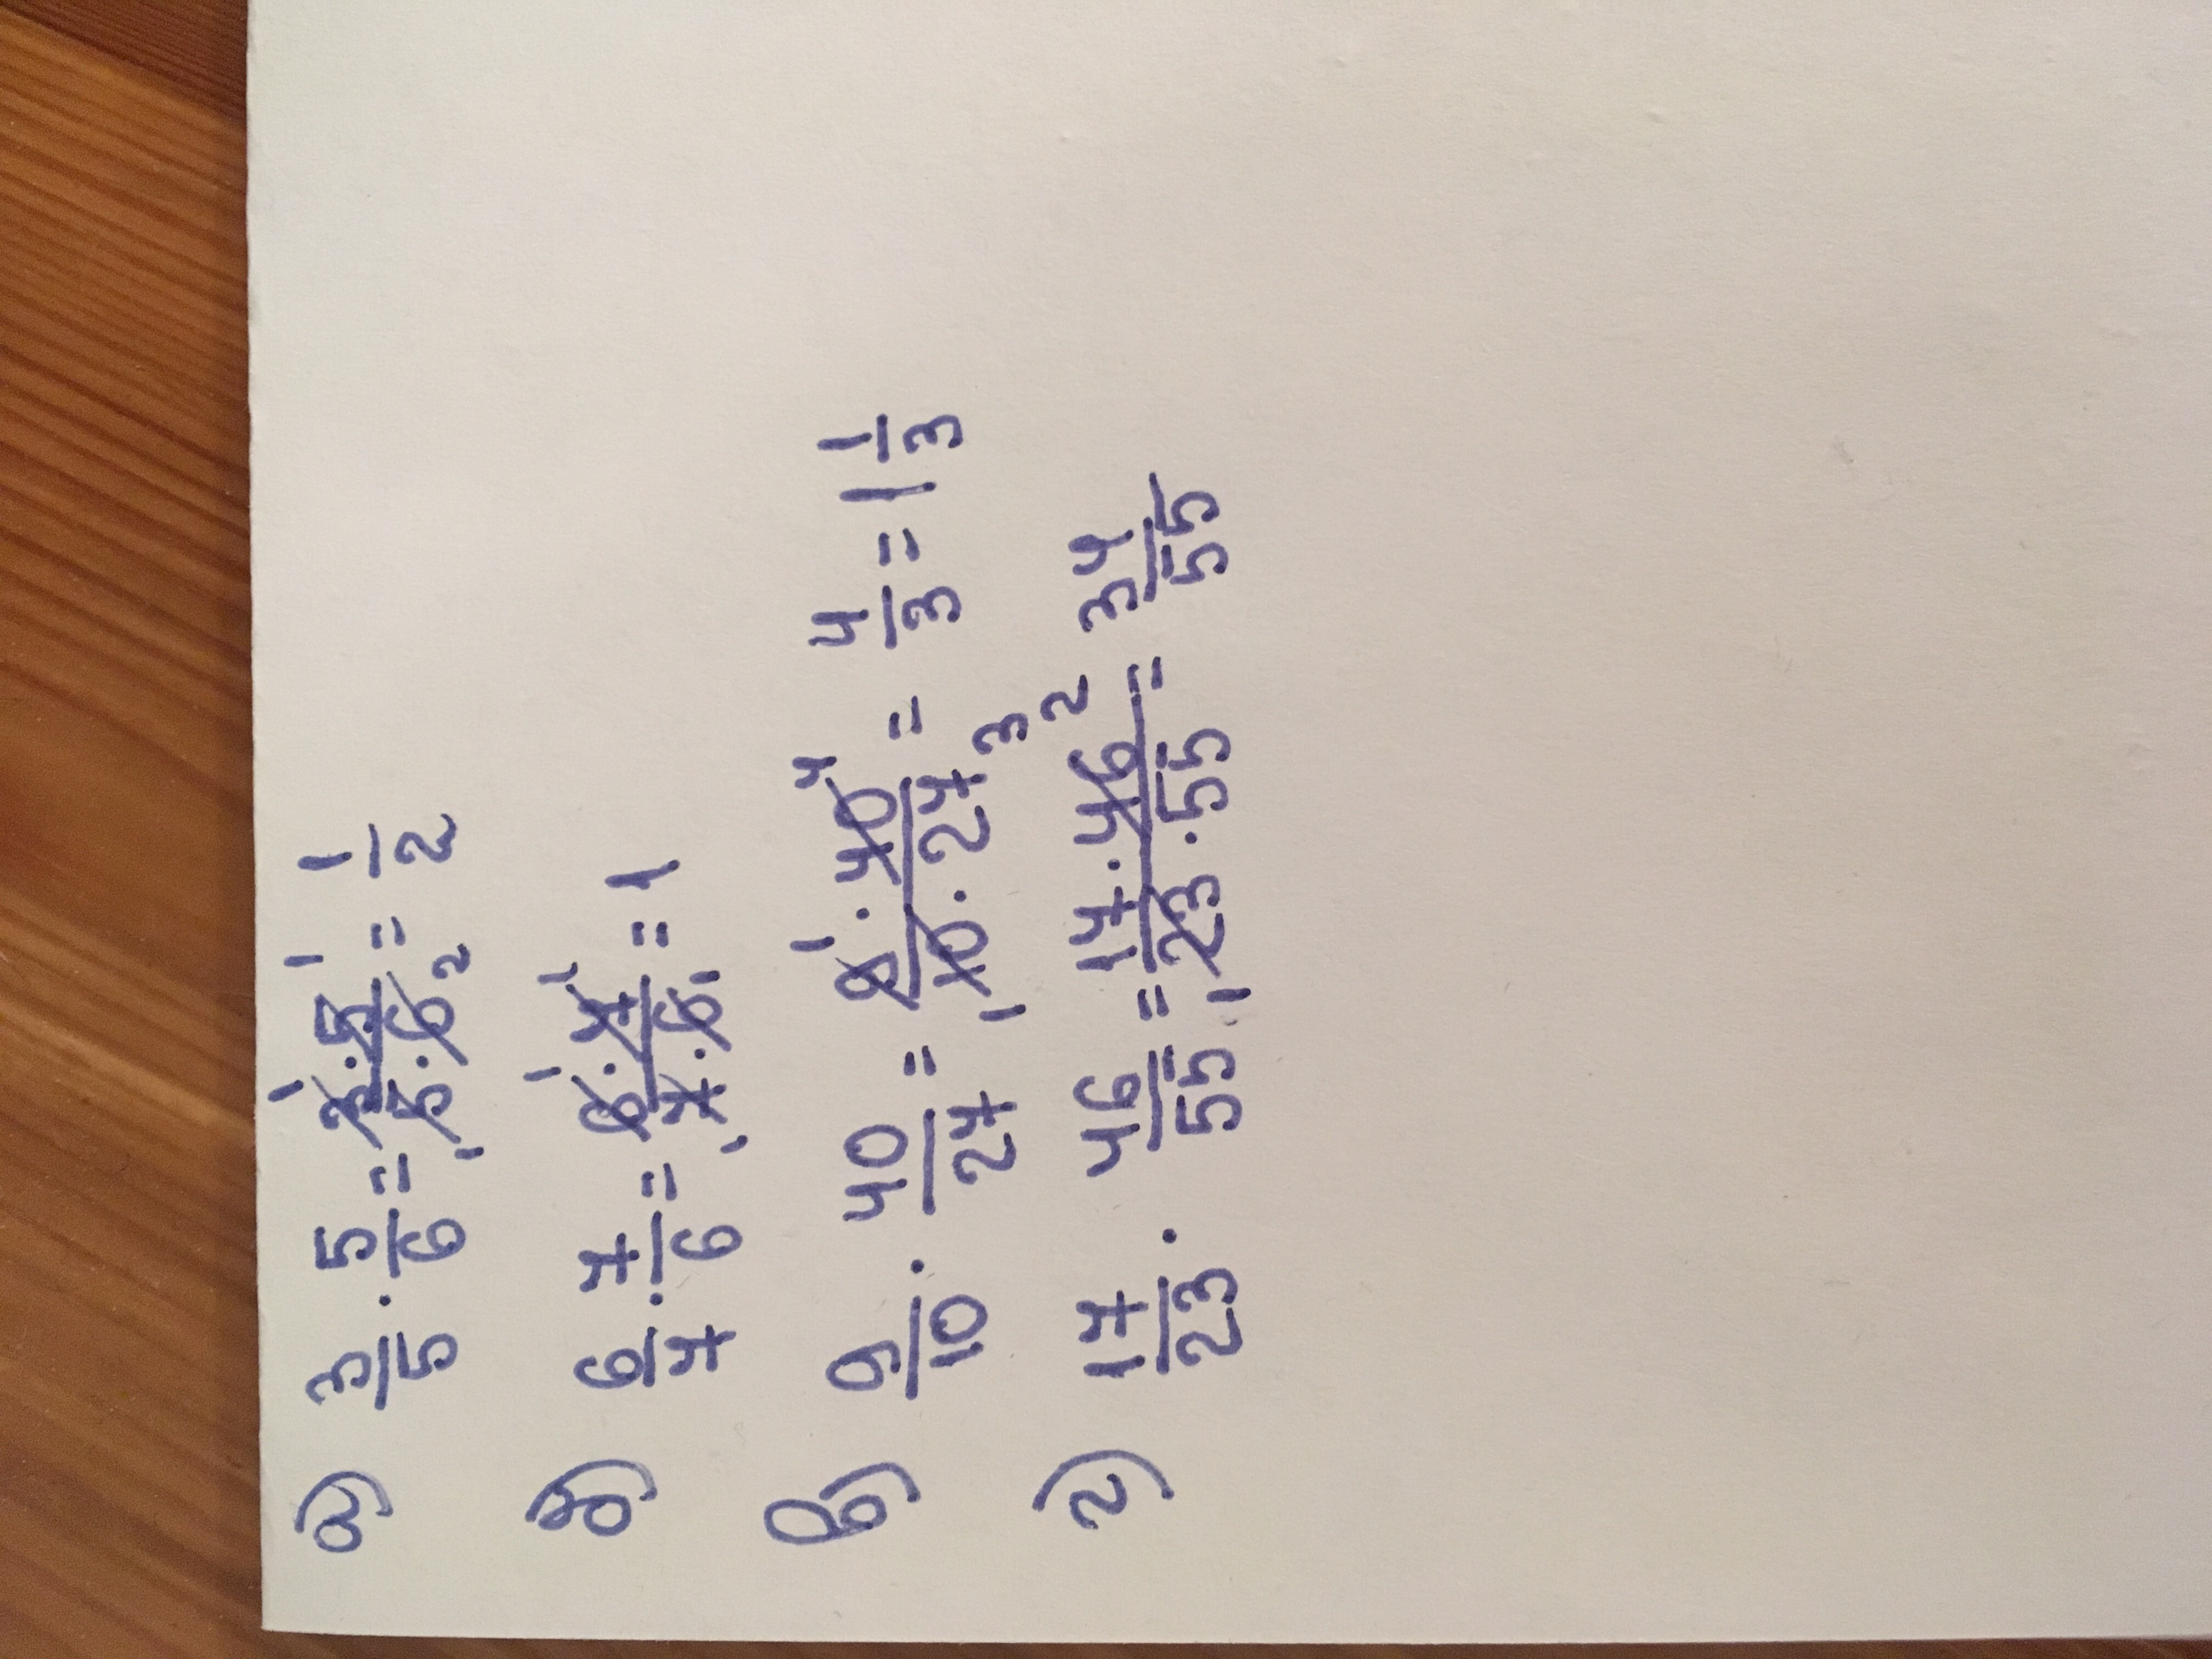 а) 3/5 · 5/6 = 3·5/5·6 = 1/2
б) 6/7 · 7/6 = 6·7/7·6 = 1
в) 9/10 · 40/27 = 9·40/10·27 = 4/3 = 1 1/3
г) 17/23 · 46/55 = 17·46/23·55 = 34/55